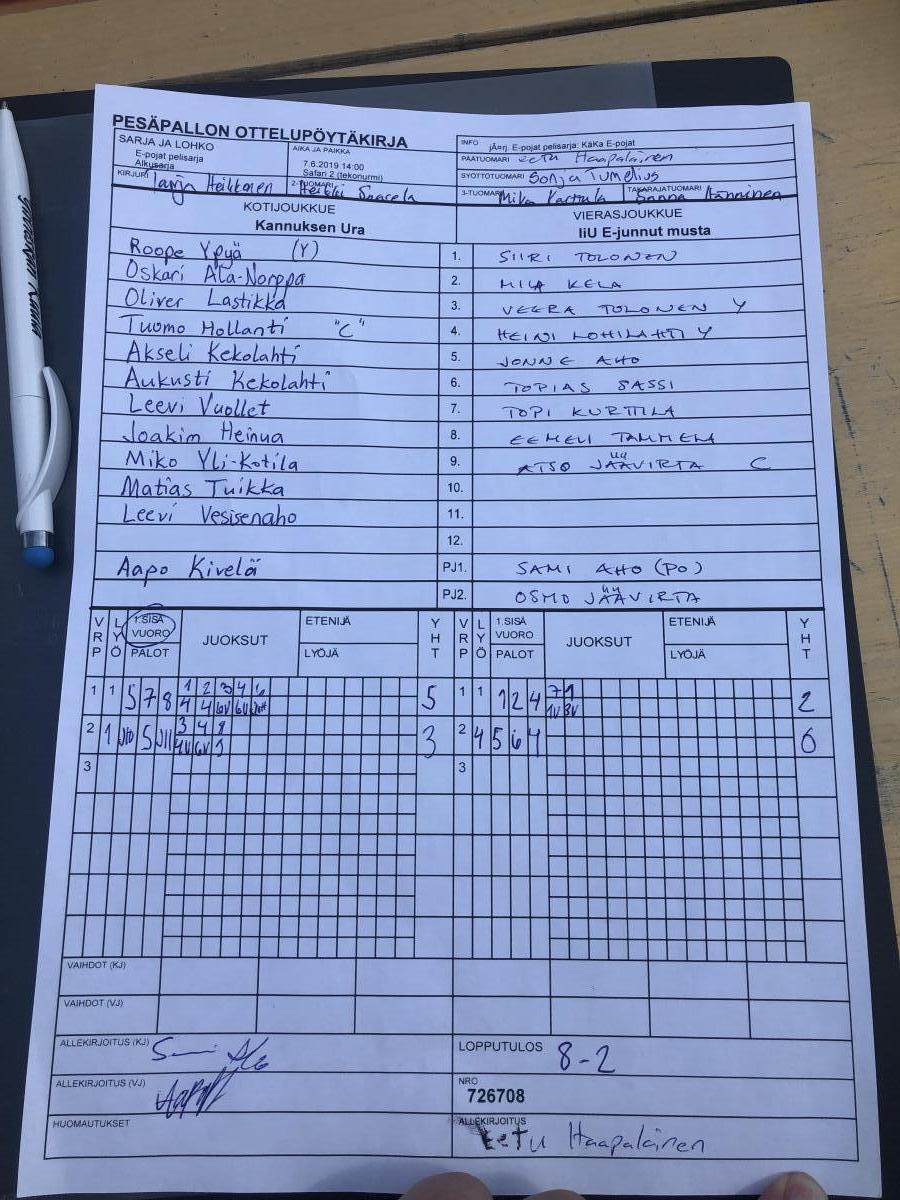 PESÄPALLON OTTELUPÖYTÄKIRJA
SARJA JA LOHKO
E-pojat pelisarja
Alkusarja
AIKA JA PAIKKA
7.6.2019 14:00
Safari 2 (tekonurmi)
INFO järj. E-pojat pelisarja: KäKa E-pojat
PÄÄTUOMARI Eetu Haapalainen
SYÖTTÖTUOMARI Sonja Tumelius
KIRJURI Tanja Heikkonen
2-TUOMARI Heikki Saarela
3-TUOMARI Mika Karttula
TAKARAJATUOMARI Sanna Hänninen
KOTIJOUKKUE
Kannuksen Ura
VIERASJOUKKUE
IiU E-junnut musta
Roope Ypyä (Y) 1. SIIRI TOLONEN
Oskari Ala-Norppa 2. MILA KELA
Oliver Lastikka 3. VEERA TOLONEN Y
Tuomo Hollanti "C" 4. HEINI LOHILAHTI Y
Akseli Kekolahti 5. JONNE AHO
Aukusti Kekolahti 6. TOPIAS SASSI
Leevi Vuollet 7. TOPI KURTTILA
Joakim Heinua 8. EEMELI TAMMELA
Miko Yli-Kotila 9. ATSO JÄÄVIRTA C
Matias Tuikka 10.
Leevi Vesisenaho 11.
12.
Aapo Kivelä PJ1. SAMI AHO (PO)
PJ2. OSMO JÄÄVIRTA
VRP LYÖ 1.SISÄ VUORO PALOT JUOKSUT ETENIJÄ LYÖJÄ YHT VRP LYÖ 1.SISÄ VUORO PALOT JUOKSUT ETENIJÄ LYÖJÄ YHT
1 1 5 7 8 1 2 3 4 5 1 1 1 2 4 7 1 2
4 4 6V 6V 1V 3V
2 1 5 3 4 8 3 2 4 5 6 4 0
4V 6V
3 3
VAIHDOT (KJ)
VAIHDOT (VJ)
ALLEKIRJOITUS (KJ)
LOPPUTULOS 8-2
ALLEKIRJOITUS (VJ)
NRO
726708
HUOMAUTUKSET
ALLEKIRJOITUS
Eetu Haapalainen